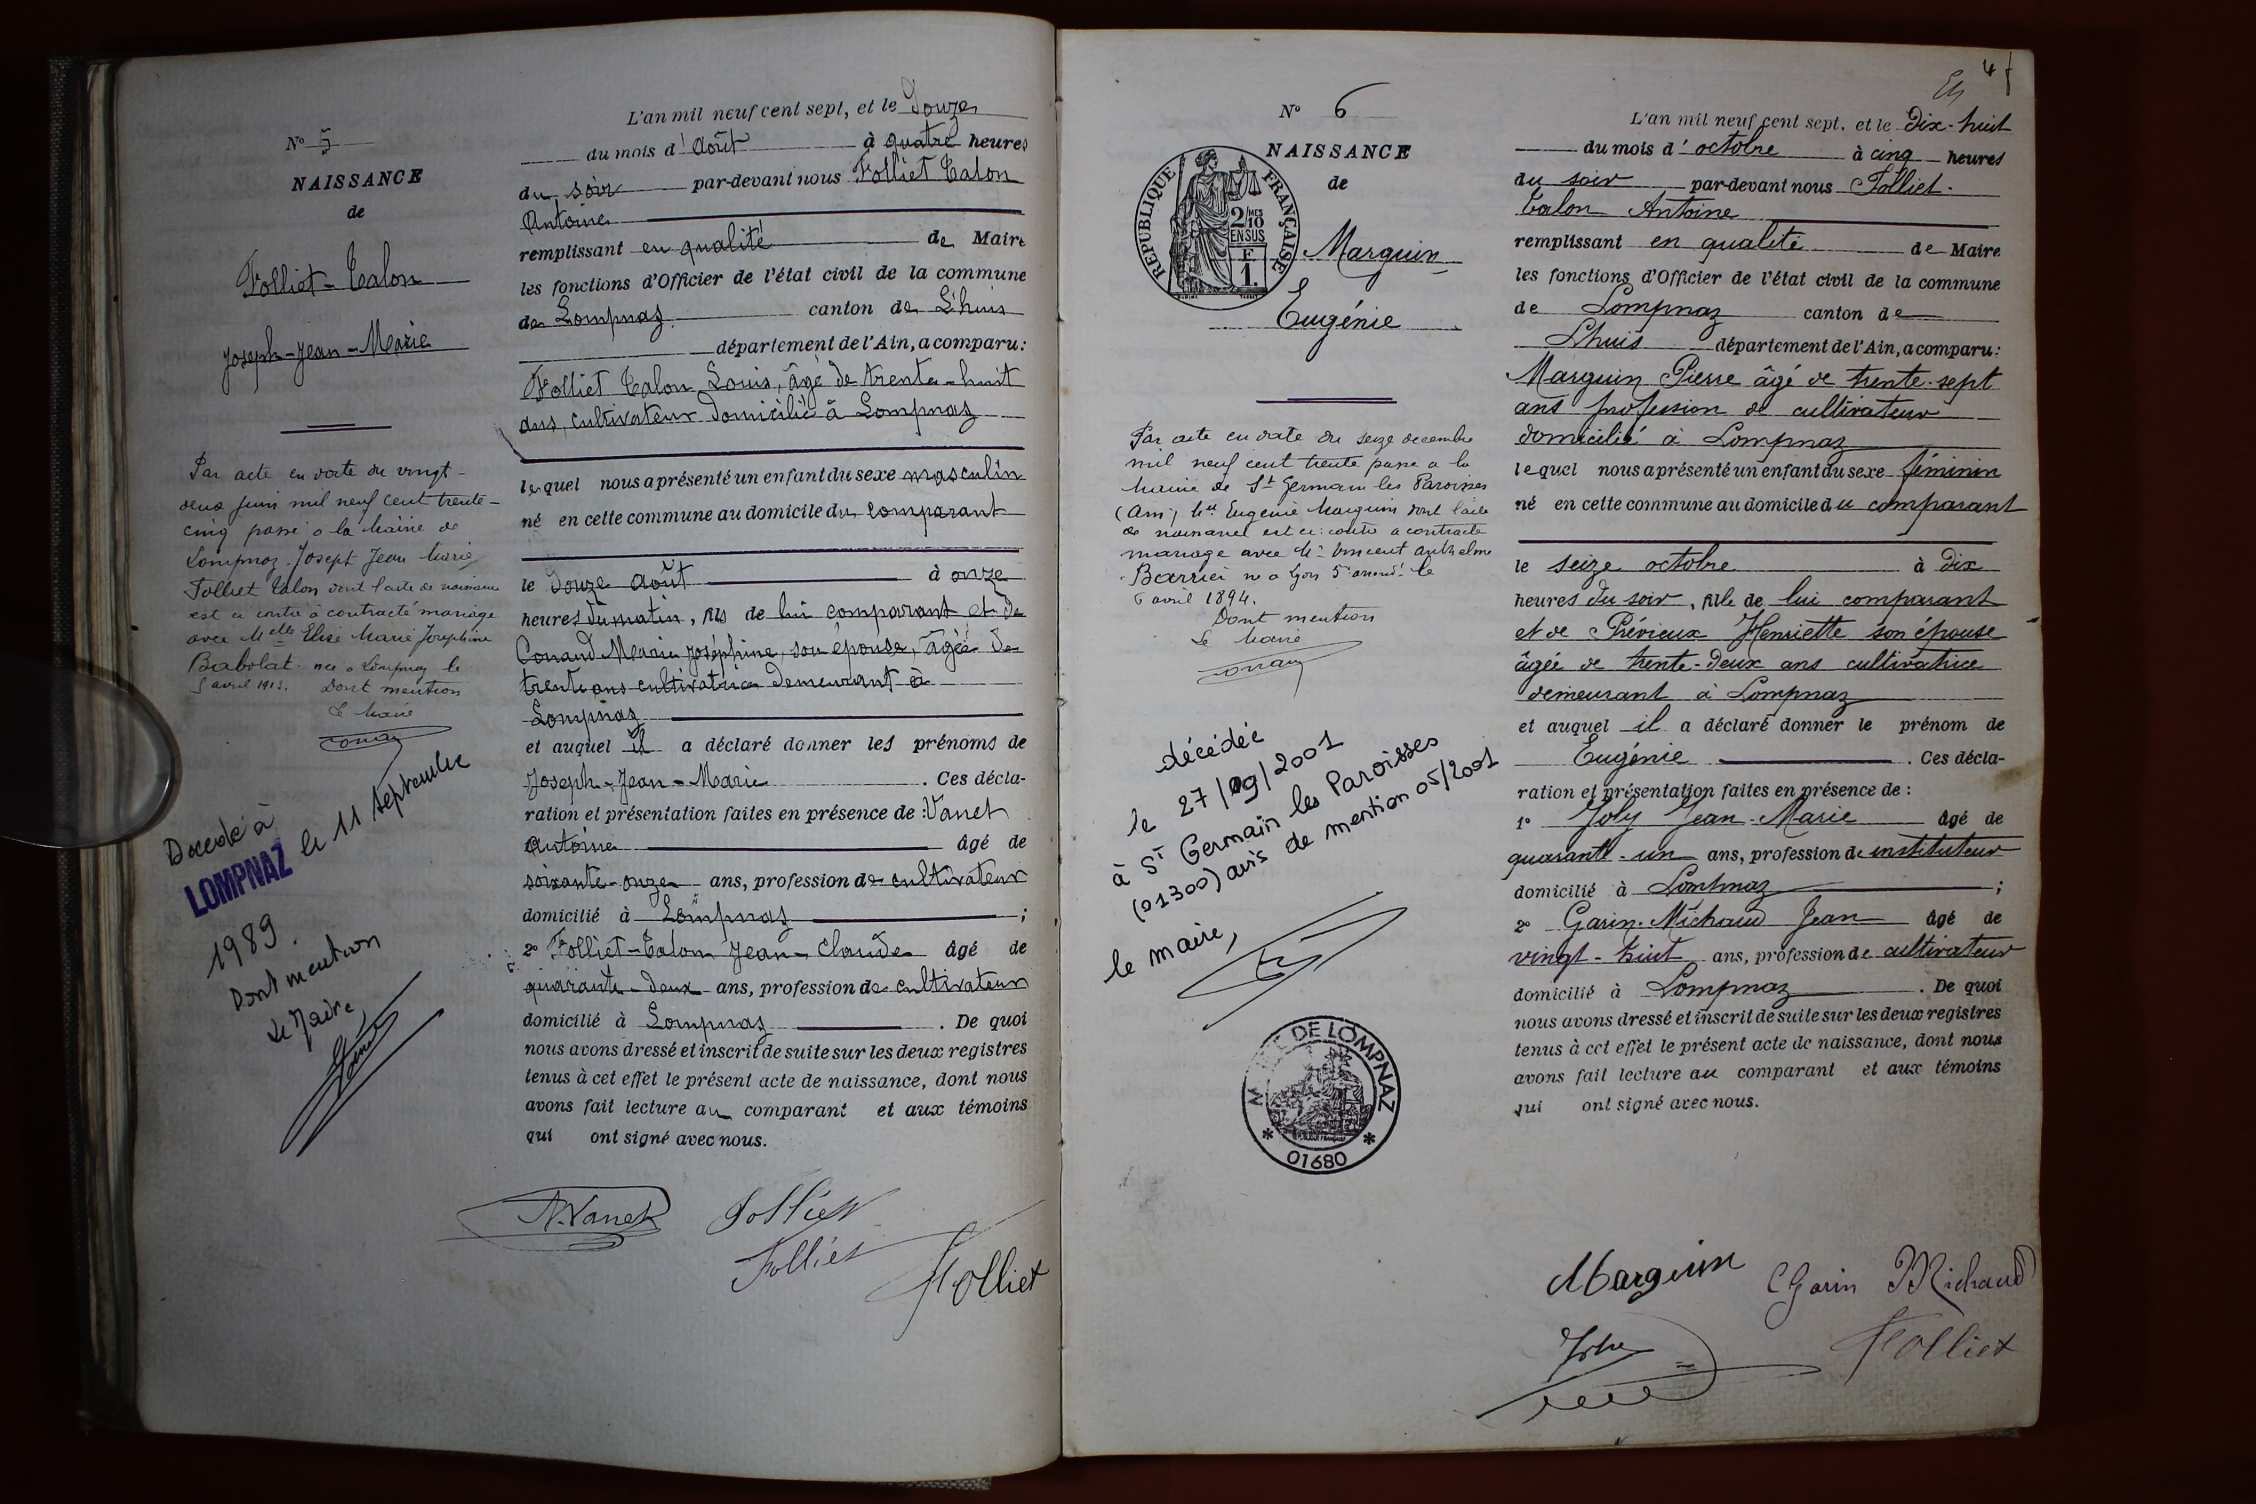 N° 5
NAISSANCE
de
Folliet-Talon
Joseph-Jean-Marie
Par acte en date du vingt-
deux juin mil neuf cent trente-
cinq passé à la Mairie de
Lompnaz Joseph Jean Marie
Folliet Talon dont l'acte de naissance
est ci contre a contracté mariage
avec Melle Elise Marie Joséphine
Babolat née à Lompnaz le
5 avril 1913. Dont mention
Le Maire
Décédé à
LOMPNAZ le 11 septembre
1989.
Dont mention
Le Maire
L'an mil neuf cent sept, et le Douze
du mois d'Août à quatre heures
du soir par-devant nous Folliet Talon
Antoine
remplissant en qualité de Maire
les fonctions d'Officier de l'état civil de la commune
de Lompnaz canton de Lhuis
département de l'Ain, a comparu:
Folliet Talon Louis, âgé de trente-huit
ans, cultivateur domicilié à Lompnaz
lequel nous a présenté un enfant du sexe masculin
né en cette commune au domicile du comparant
le Douze Août à onze
heures du matin, fils de lui comparant et de
Conand Marie Joséphine, son épouse, âgée de
trente ans cultivatrice demeurant à
Lompnaz
et auquel il a déclaré donner les prénoms de
Joseph-Jean-Marie. Ces décla-
ration et présentation faites en présence de : Vanet
Antoine âgé de
soixante-onze ans, profession de cultivateur
domicilié à Lompnaz ;
2° Folliet-Talon Jean-Claude âgé de
quarante-deux ans, profession de cultivateur
domicilié à Lompnaz. De quoi
nous avons dressé et inscrit de suite sur les deux registres
tenus à cet effet le présent acte de naissance, dont nous
avons fait lecture au comparant et aux témoins
qui ont signé avec nous.
A. Vanet Folliet
Folliet Folliet
4
N° 6
NAISSANCE
de
REPUBLIQUE FRANÇAISE
2/10 MES
EN SUS
F
1.
Marguin
Eugénie
Par acte en date du seize decembre
mil neuf cent trente passé à la
Mairie de St Germain les Paroisses
(Ain) Melle Eugenie Marguin dont l'acte
de naissance est ci: contre a contracté
mariage avec Mr Vincent Anthelme
Barrier né à Lyon 5e arrondt le
6 avril 1894.
Dont mention
Le Maire
décédée
le 27/09/2001
à St Germain les Paroisses
(01300) avis de mention 05/2001
le maire,
MAIRIE DE LOMPNAZ
* 01680 *
L'an mil neuf cent sept, et le Dix-huit
du mois d'octobre à cinq heures
du soir par-devant nous Folliet-
Talon Antoine
remplissant en qualité de Maire
les fonctions d'Officier de l'état civil de la commune
de Lompnaz canton de
Lhuis département de l'Ain, a comparu:
Marguin Pierre âgé de trente-sept
ans profession de cultivateur
domicilié à Lompnaz
lequel nous a présenté un enfant du sexe féminin
né en cette commune au domicile du comparant
le seize octobre à dix
heures du soir, fille de lui comparant
et de Prévieux Henriette son épouse
âgée de trente-deux ans cultivatrice
demeurant à Lompnaz
et auquel il a déclaré donner le prénom de
Eugénie. Ces décla-
ration et présentation faites en présence de :
1° Joly Jean-Marie âgé de
quarante-un ans, profession de instituteur
domicilié à Lompnaz ;
2° Garin-Michaud Jean âgé de
vingt-huit ans, profession de cultivateur
domicilié à Lompnaz. De quoi
nous avons dressé et inscrit de suite sur les deux registres
tenus à cet effet le présent acte de naissance, dont nous
avons fait lecture au comparant et aux témoins
qui ont signé avec nous.
Marguin Garin Michaud
Folliet